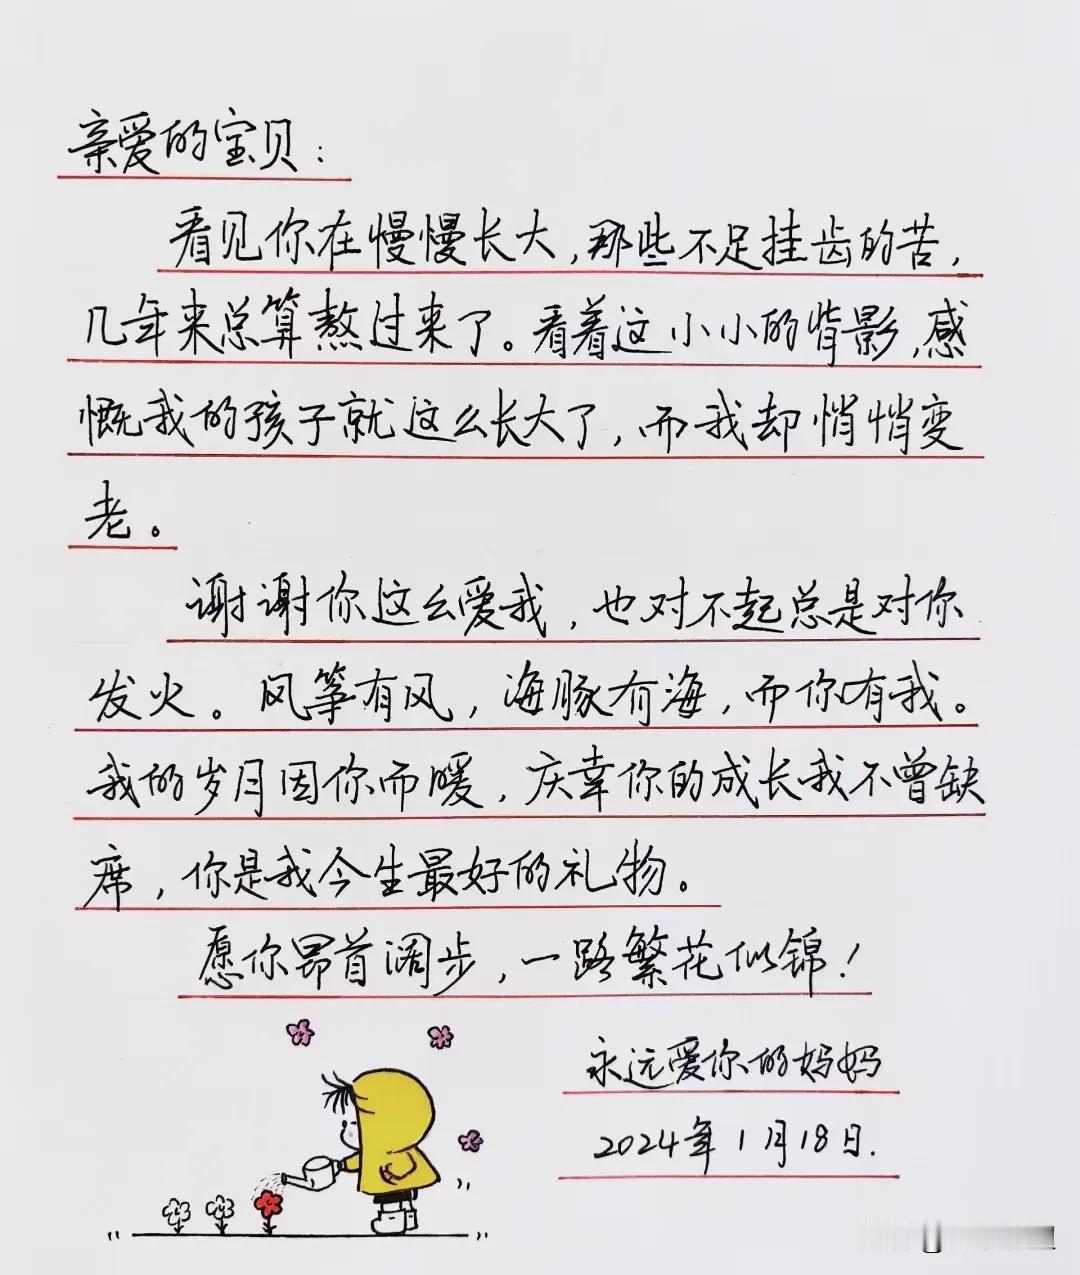 亲爱的宝贝：
看见你在慢慢长大,那些不足挂齿的苦,
几年来总算熬过来了。看着这小小的背影,感
慨我的孩子就这么长大了,而我却悄悄变
老。
谢谢你这么爱我,也对不起总是对你
发火。风筝有风,海豚有海,而你有我。
我的岁月因你而暖,庆幸你的成长我不曾缺
席,你是我今生最好的礼物。
愿你昂首阔步,一路繁花似锦!
永远爱你的妈妈
2024年1月18日.